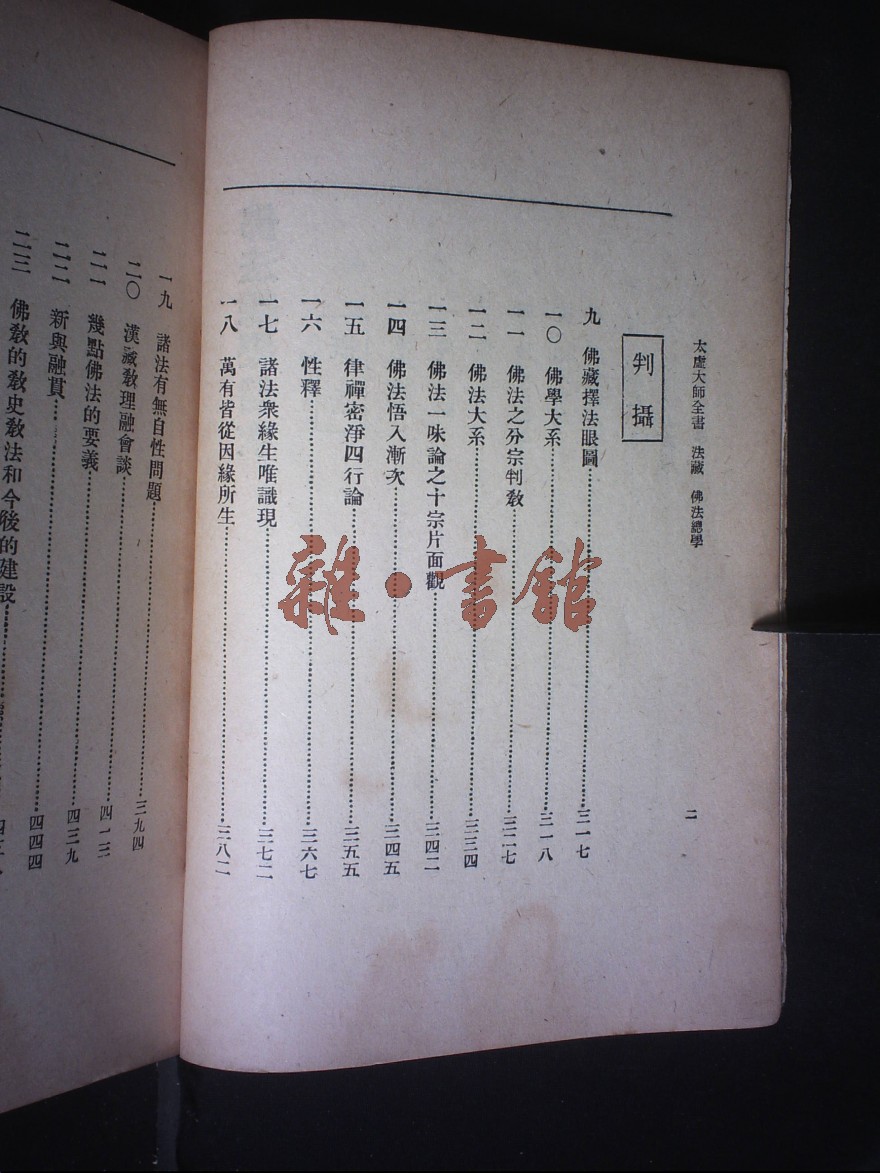 太虛大師全書 法藏 佛法總學
二
判攝
九 佛藏擇法眼圖 三一七
一〇 佛學大系 三一八
一一 佛法之分宗判教 三二七
一二 佛法大系 三三四
一三 佛法一味論之十宗片面觀 三四二
一四 佛法悟入漸次 三四五
一五 律禪密淨四行論 三五五
一六 性釋 三六七
一七 諸法衆緣生唯識現 三七二
一八 萬有皆從因緣所生 三八二
一九 諸法有無自性問題 三九四
二〇 漢藏教理融會談 四一三
二一 幾點佛法的要義 四三九
二二 新興融貫 四四四
二三 佛教的教史教法和今後的建設
雜·書館